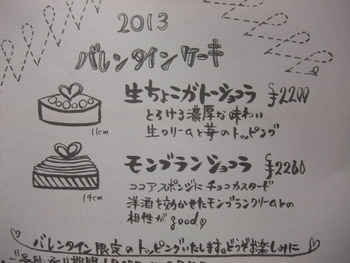 2013
バレンタインケーキ
生ちょこガトーショコラ ¥2200
とろける濃厚な味わい
生クリームと苺のトッピング
11cm
モンブランショコラ ¥2260
ココアスポンジにチョコカスタード
洋酒を効かせたモンブランクリームとの
相性がgood♡
14cm
バレンタイン限定のトッピングいたします。どうぞお楽しみに